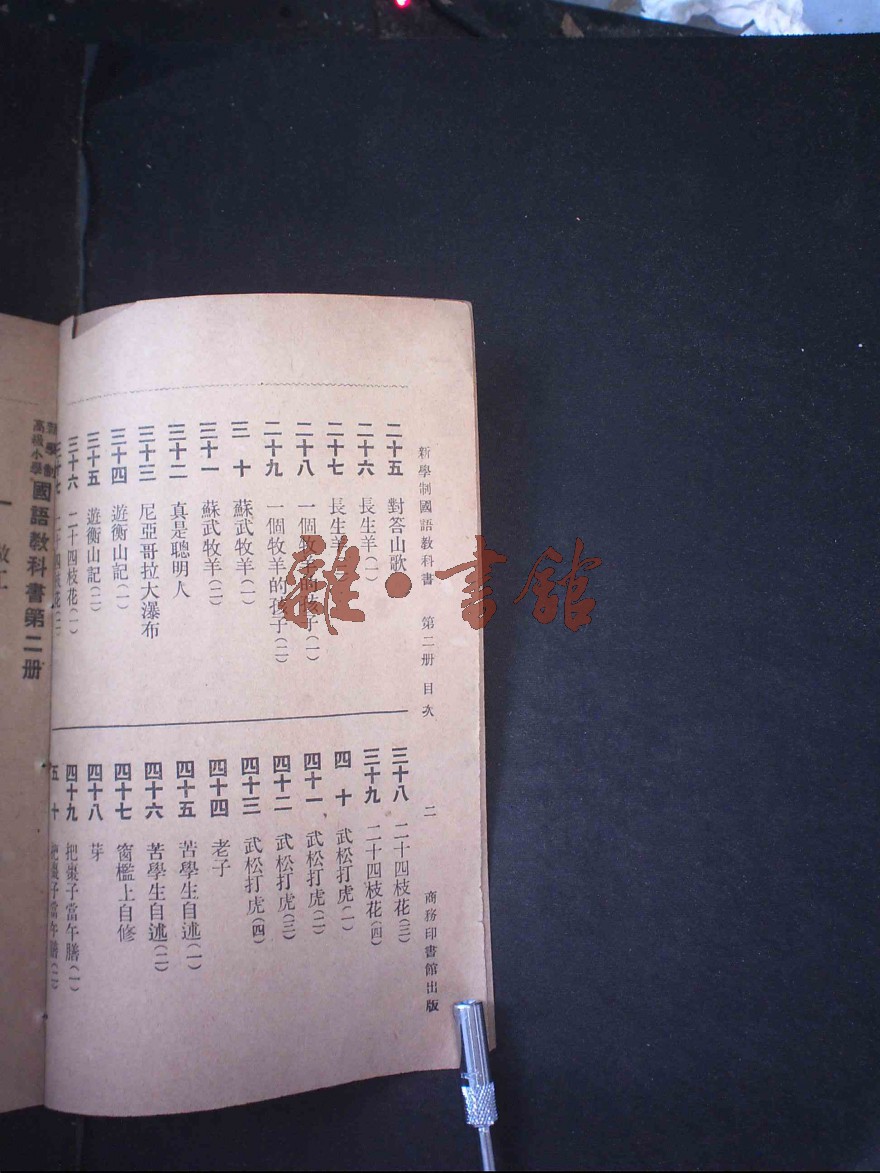 新學制國語教科書 第二册 目次 二 商務印書館出版
二十五 對答山歌
二十六 長生羊(一)
二十七 長生羊
二十八 一個牧羊的孩子(一)
二十九 一個牧羊的孩子(二)
三十 蘇武牧羊(一)
三十一 蘇武牧羊(二)
三十二 真是聰明人
三十三 尼亞哥拉大瀑布
三十四 遊衡山記(一)
三十五 遊衡山記(二)
三十六 二十四枝花(一)
三十七 二十四枝花(二)
三十八 二十四枝花(三)
三十九 二十四枝花(四)
四十 武松打虎(一)
四十一 武松打虎(二)
四十二 武松打虎(三)
四十三 武松打虎(四)
四十四 老子
四十五 苦學生自述(一)
四十六 苦學生自述(二)
四十七 窗檻上自修
四十八 芽
四十九 把棗子當午膳(一)
五十 把棗子當午膳(二)
新學制
高級小學
國語教科書第二册
一
雜·書館